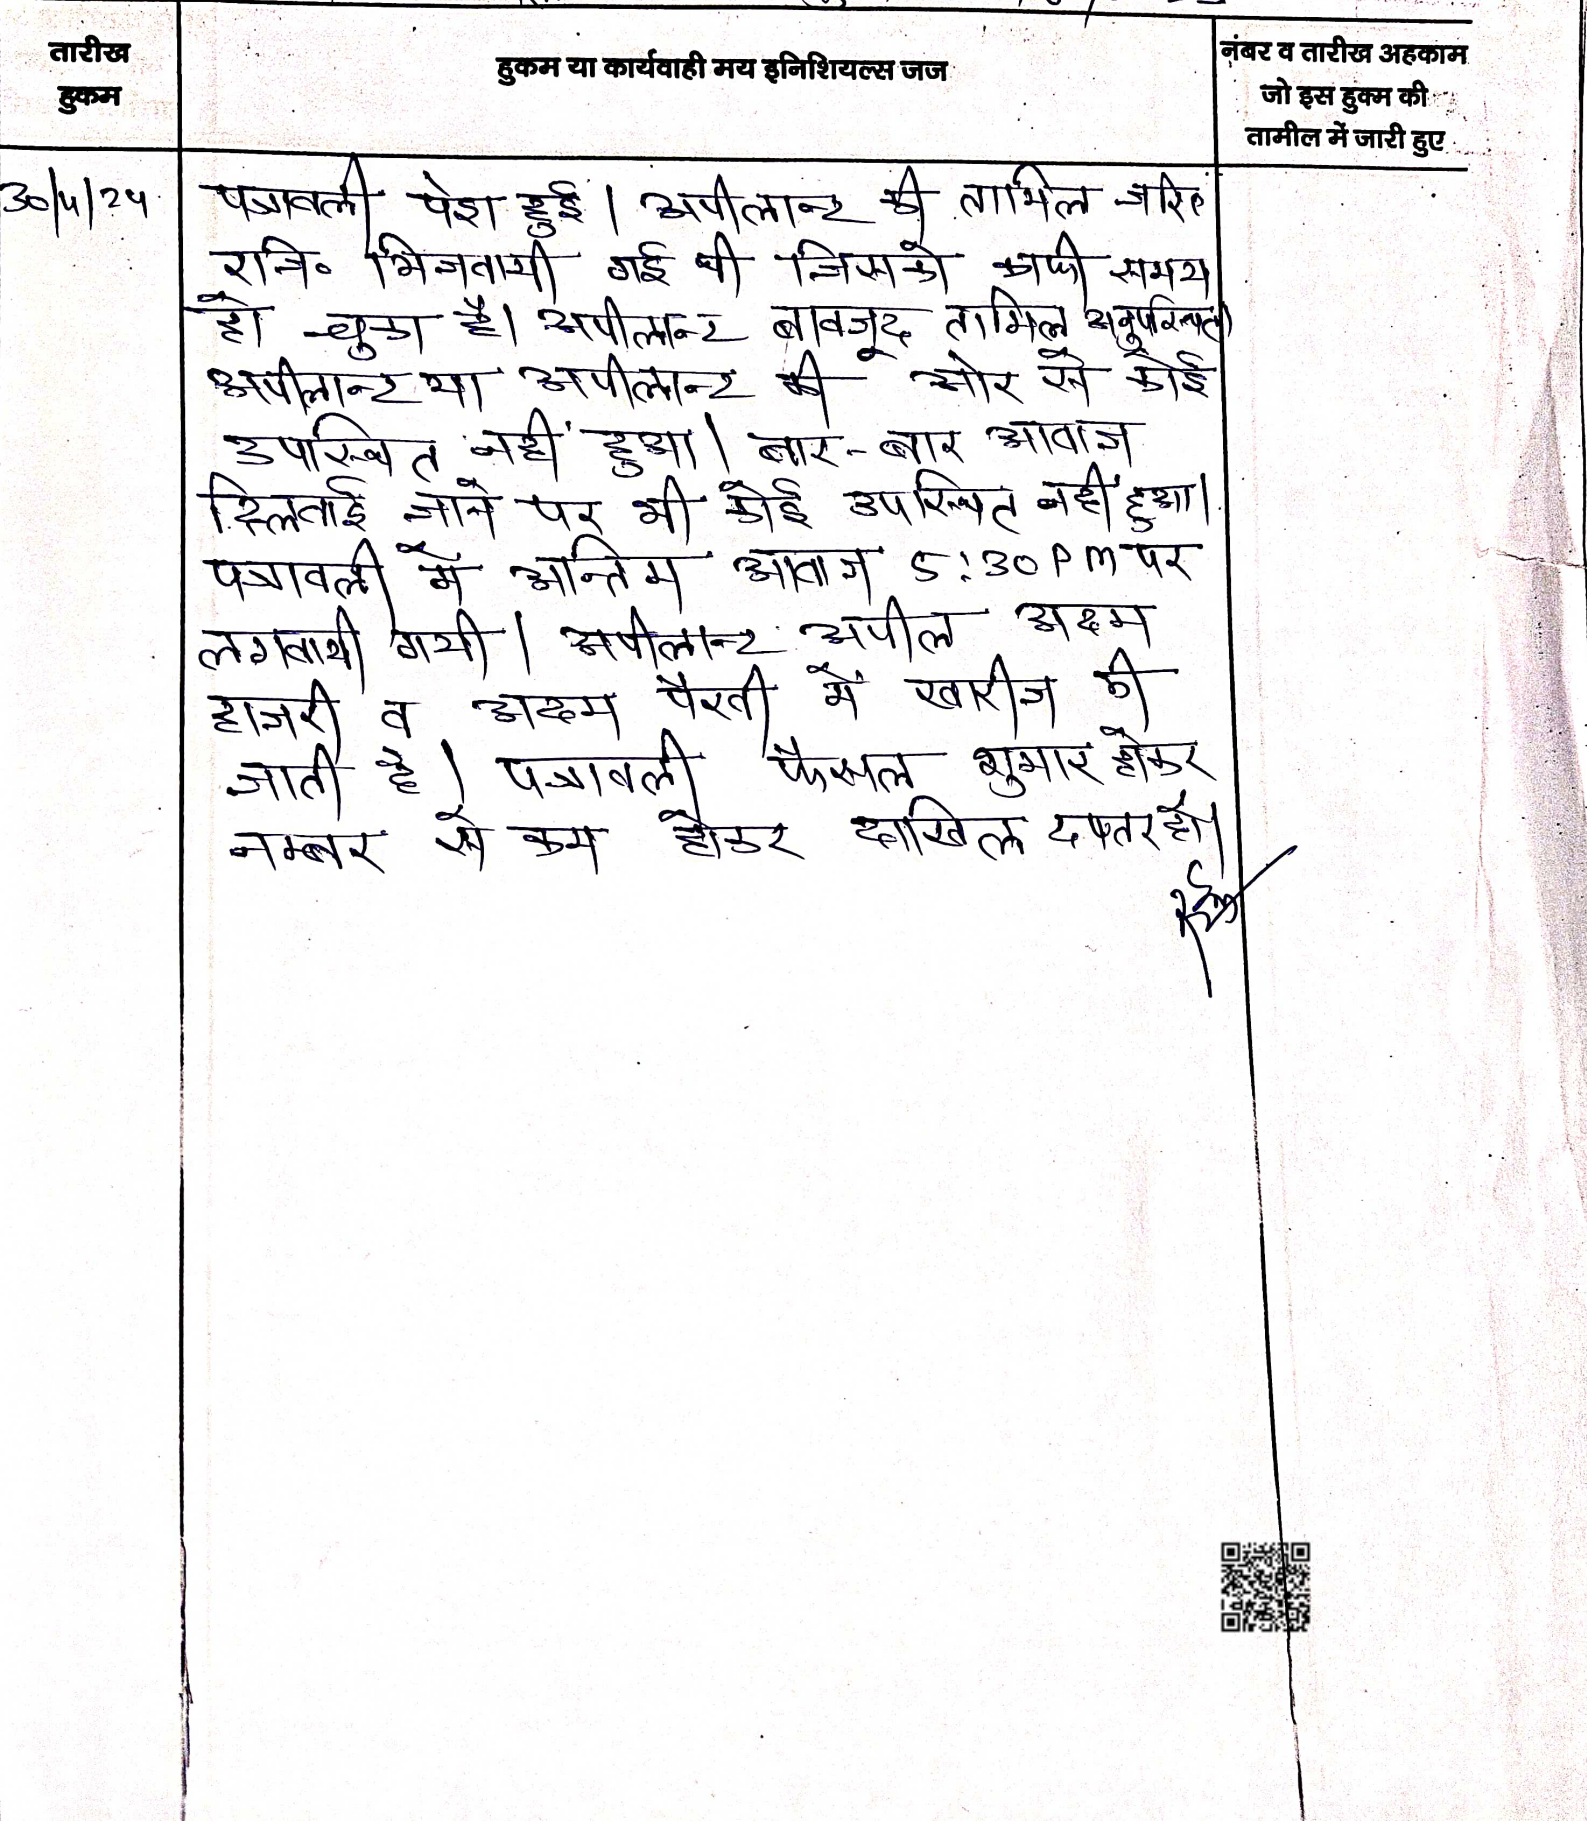 तारीख
हुकम
हुकम या कार्यवाही मय इनिशियल्स जज
नंबर व तारीख अहकाम
जो इस हुक्म की
तामील में जारी हुए
30/4/24
पत्रावली पेश हुई। अपीलान्ट की तामिल जरिए
रजि० भिजवायी गई थी जिसको काफी समय
हो चुका है। अपीलान्ट बावजूद तामिल अनुपस्थित।
अपीलान्ट या अपीलान्ट की ओर से कोई
उपस्थित नहीं हुआ। बार-बार आवाज
दिलवाई जाने पर भी कोई उपस्थित नहीं हुआ।
पत्रावली में अन्तिम आवाज 5:30 PM पर
लगवायी गयी। अपीलान्ट अपील अदम
हाजरी व अदम पैरवी में खारीज की
जाती है। पत्रावली फैसल शुमार होकर
नम्बर से कम होकर दाखिल दफ्तर हो।